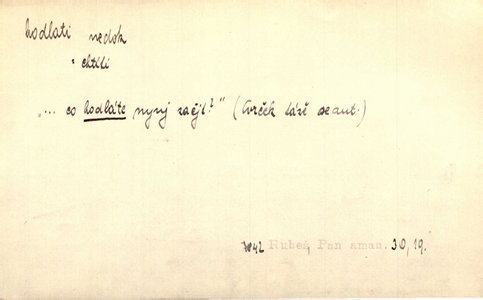 hodlati nedok
= chtíti
„... co hodláte nyní začít?" (Cvrček táže se aut.)
1842 Rubeš, Pan aman. 30, 19.